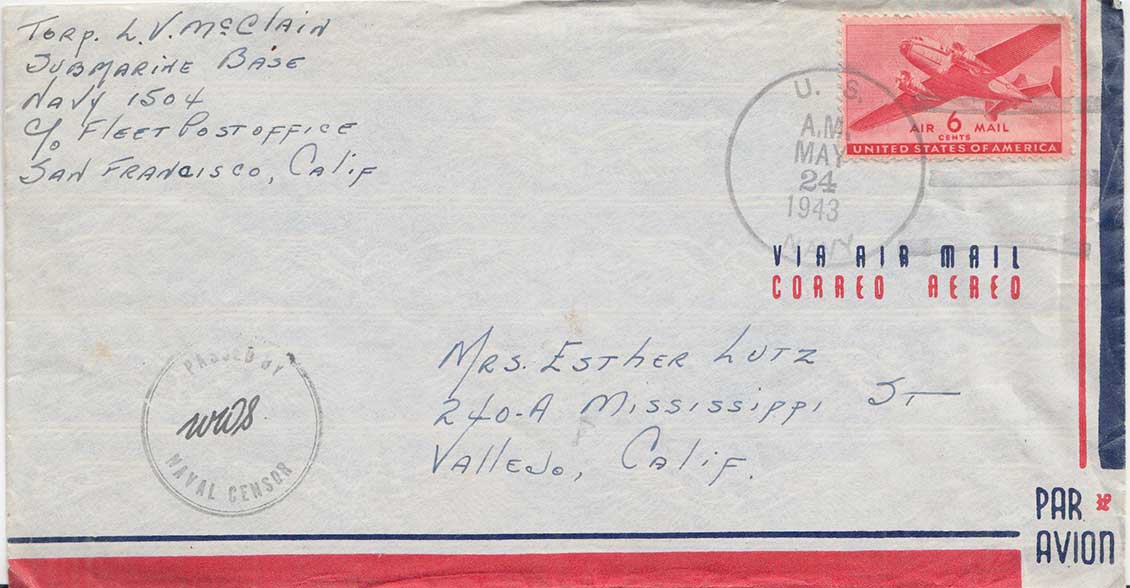 Torp. L.V. McClain
Submarine Base
Navy 1504
c/o Fleet Postoffice
San Francisco, Calif
U. S.
A.M.
MAY
24
1943
NAVY
AIR 6 MAIL
CENTS
UNITED STATES OF AMERICA
VIA AIR MAIL
CORREO AEREO
PASSED BY
WWS
NAVAL CENSOR
Mrs. Esther Lutz
240-A Mississippi St
Vallejo, Calif.
PAR
AVION